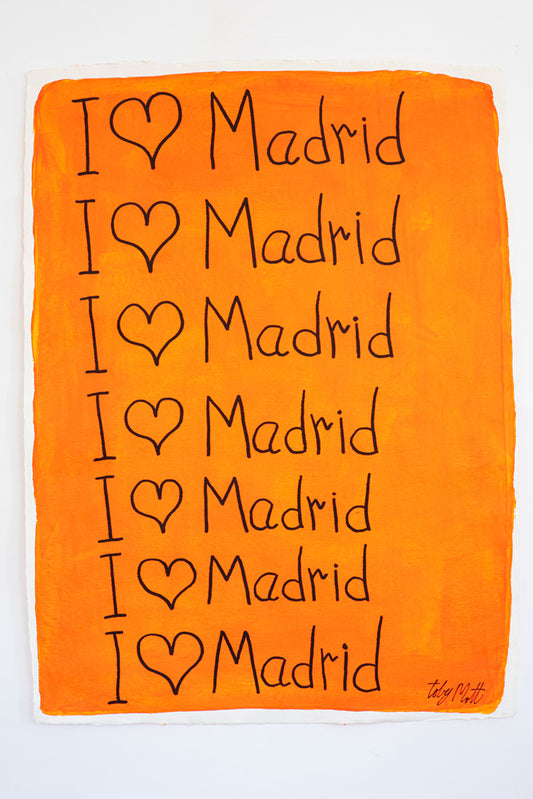 I ♡ Madrid
I ♡ Madrid
I ♡ Madrid
I ♡ Madrid
I ♡ Madrid
I ♡ Madrid
I ♡ Madrid
toby Mott